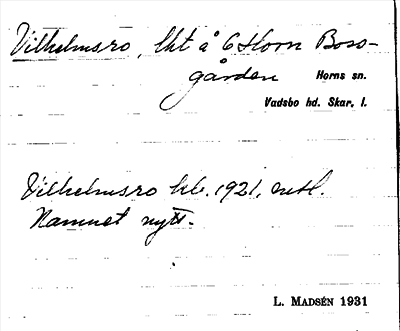 Vilhelmsro, lht å 6 Horn Boso-
gården Horns sn.
Vadsbo hd. Skar. l.
Vilhelmsro kb. 1921, mtl.
Namnet nytt.
L. MADSÉN 1931